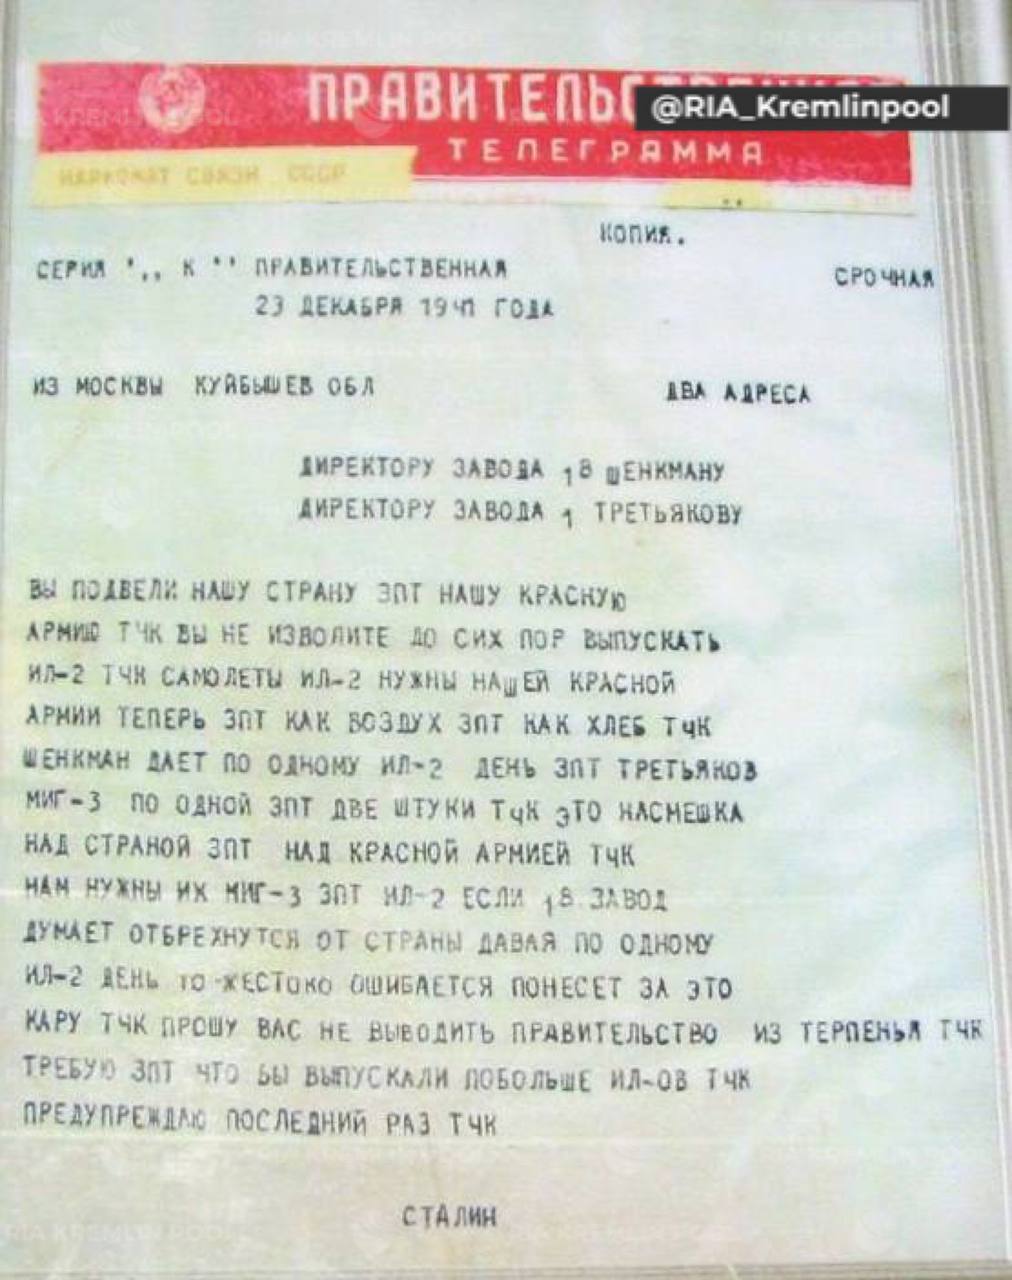 ПРАВИТЕЛЬСТВЕННАЯ
@RIA_Kremlinpool
ТЕЛЕГРАММА
НАРКОМАТ СВЯЗИ СССР
КОПИЯ.
СЕРИЯ ",, К " ПРАВИТЕЛЬСТВЕННАЯ СРОЧНАЯ
23 ДЕКАБРЯ 1941 ГОДА
ИЗ МОСКВЫ КУЙБЫШЕВ ОБЛ ДВА АДРЕСА
ДИРЕКТОРУ ЗАВОДА 18 ШЕНКМАНУ
ДИРЕКТОРУ ЗАВОДА 1 ТРЕТЬЯКОВУ
ВЫ ПОДВЕЛИ НАШУ СТРАНУ ЗПТ НАШУ КРАСНУЮ
АРМИЮ ТЧК ВЫ НЕ ИЗВОЛИТЕ ДО СИХ ПОР ВЫПУСКАТЬ
ИЛ-2 ТЧК САМОЛЕТЫ ИЛ-2 НУЖНЫ НАШЕЙ КРАСНОЙ
АРМИИ ТЕПЕРЬ ЗПТ КАК ВОЗДУХ ЗПТ КАК ХЛЕБ ТЧК
ШЕНКМАН ДАЕТ ПО ОДНОМУ ИЛ-2 ДЕНЬ ЗПТ ТРЕТЬЯКОВ
МИГ-3 ПО ОДНОЙ ЗПТ ДВЕ ШТУКИ ТЧК ЭТО НАСМЕШКА
НАД СТРАНОЙ ЗПТ НАД КРАСНОЙ АРМИЕЙ ТЧК
НАМ НУЖНЫ ИХ МИГ-3 ЗПТ ИЛ-2 ЕСЛИ 18 ЗАВОД
ДУМАЕТ ОТБРЕХНУТСЯ ОТ СТРАНЫ ДАВАЯ ПО ОДНОМУ
ИЛ-2 ДЕНЬ ТО ЖЕСТОКО ОШИБАЕТСЯ ПОНЕСЕТ ЗА ЭТО
КАРУ ТЧК ПРОШУ ВАС НЕ ВЫВОДИТЬ ПРАВИТЕЛЬСТВО ИЗ ТЕРПЕНЬЯ ТЧК
ТРЕБУЮ ЗПТ ЧТО БЫ ВЫПУСКАЛИ ПОБОЛЬШЕ ИЛ-ОВ ТЧК
ПРЕДУПРЕЖДАЮ ПОСЛЕДНИЙ РАЗ ТЧК
СТАЛИН